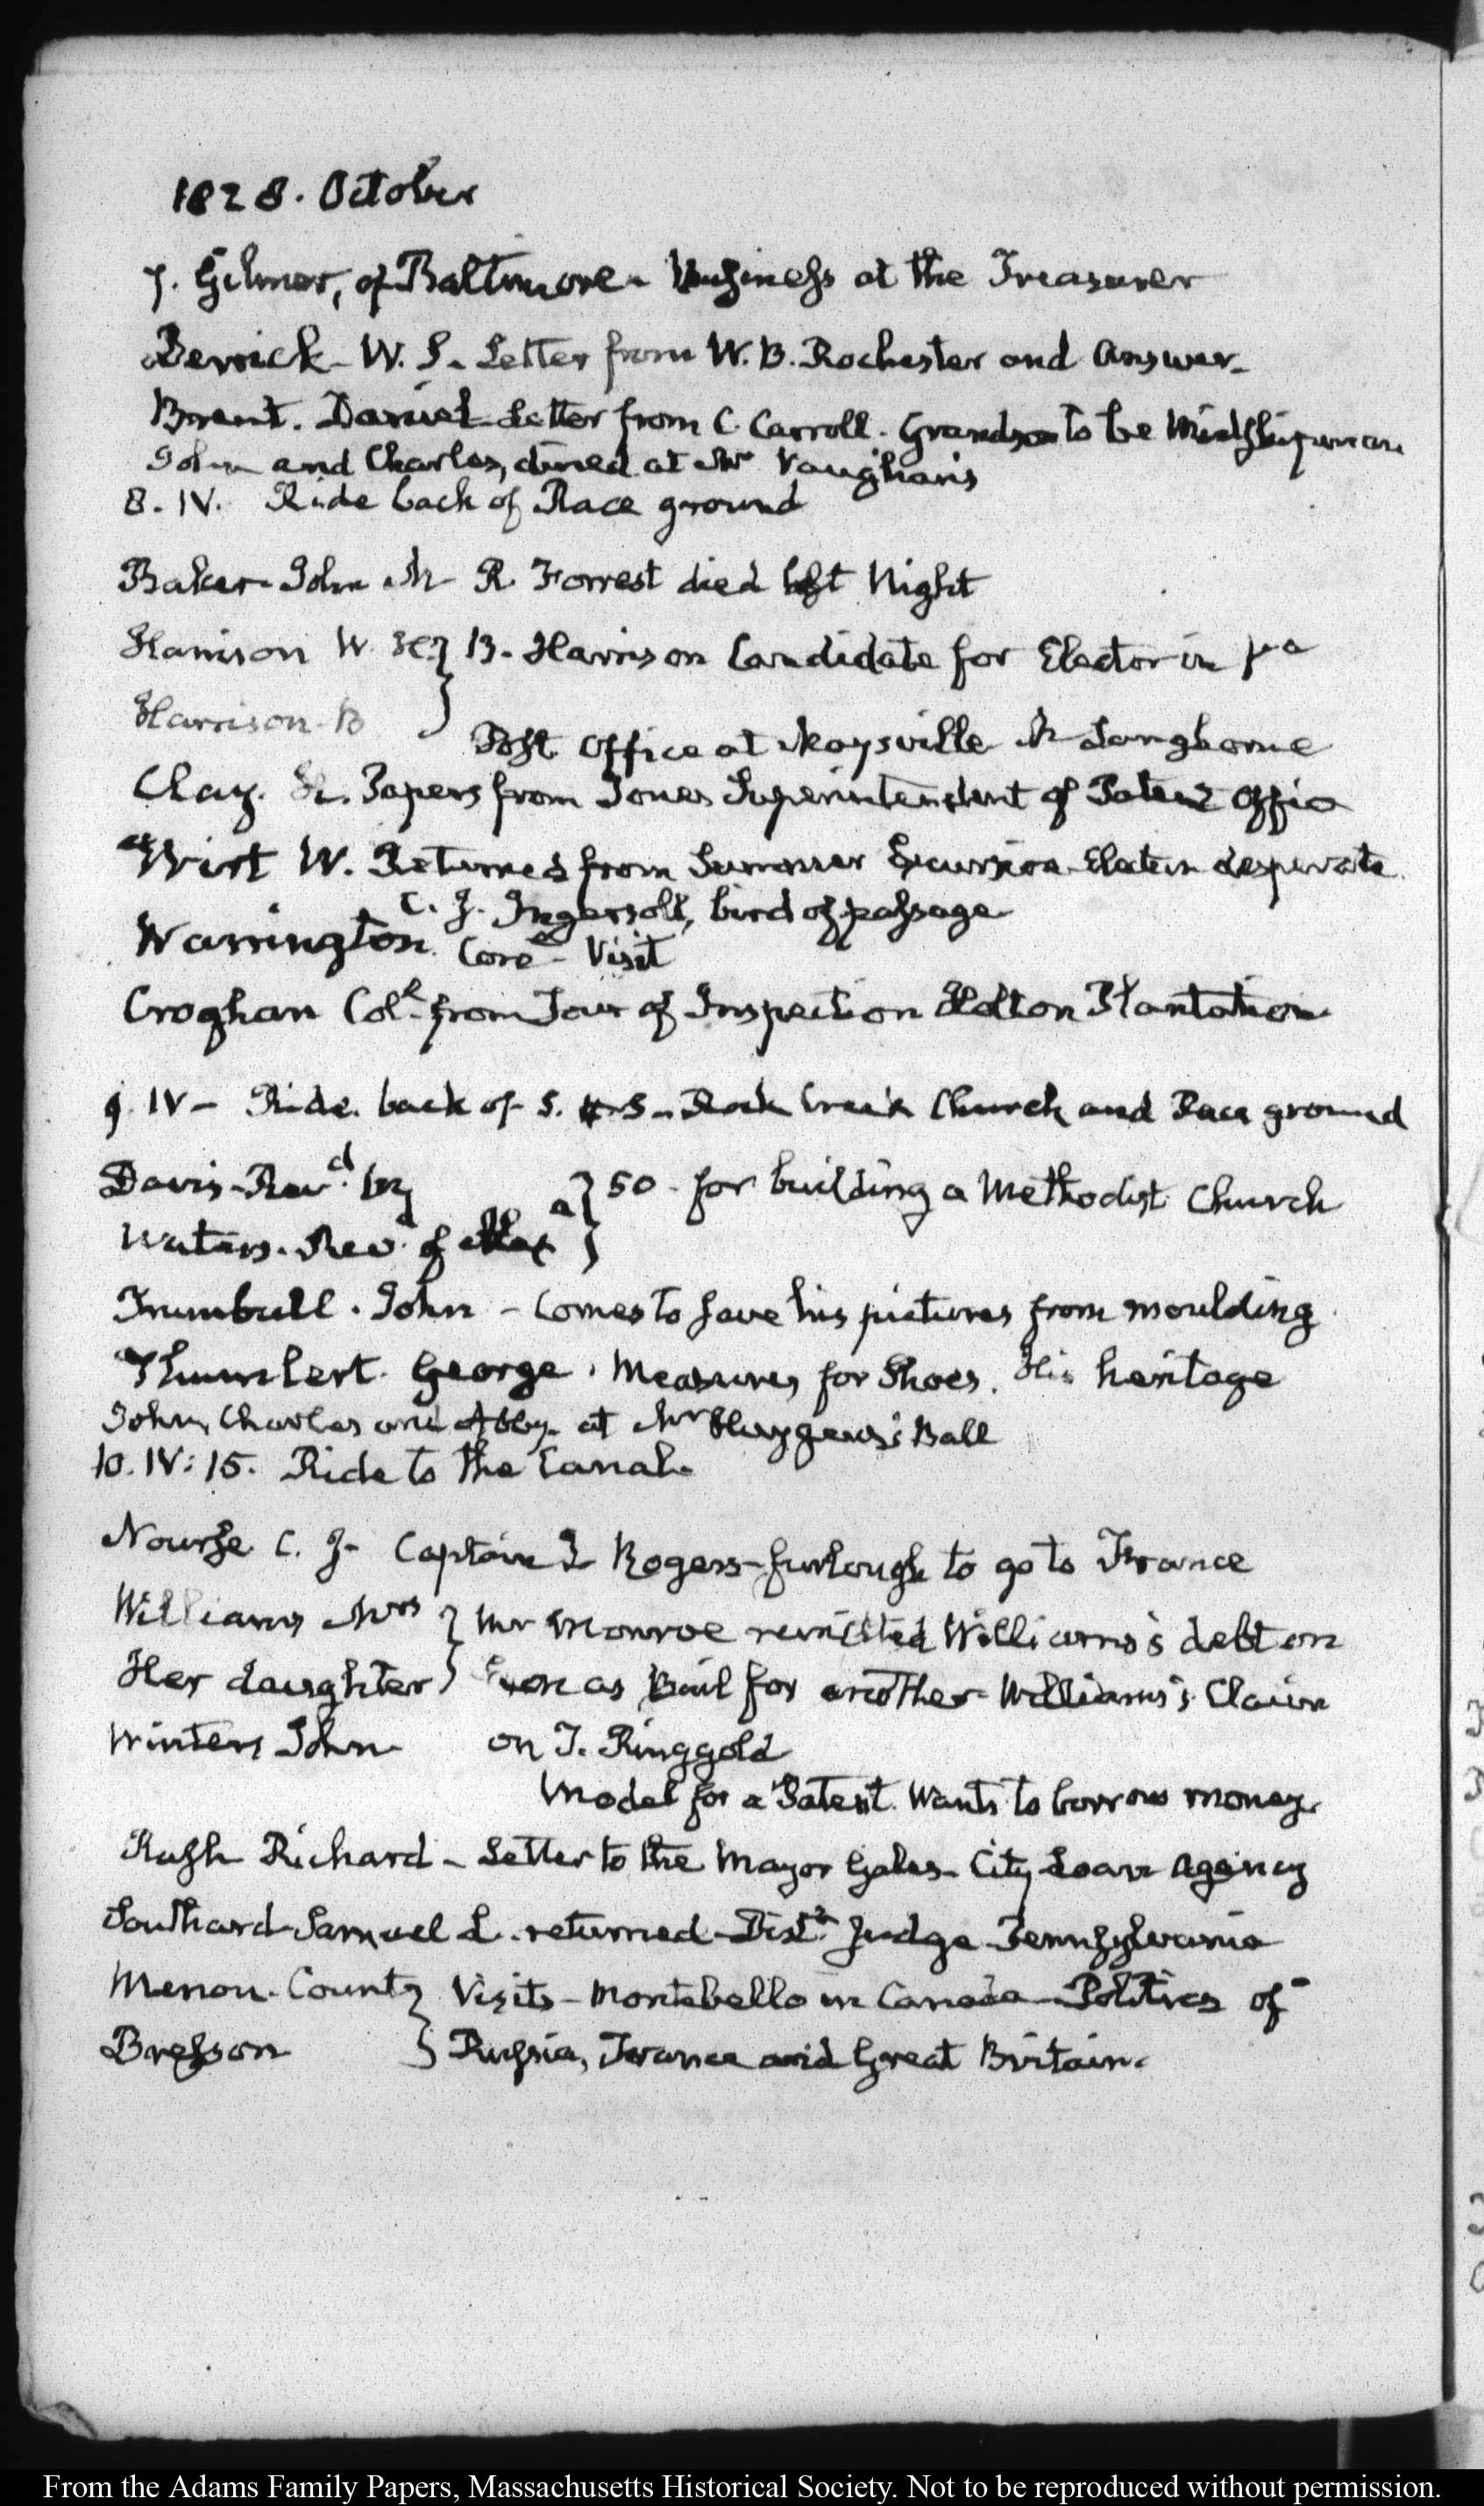 1828. October
7. Gilmor, of Baltimore. Business at the Treasurer
Derrick W. S. Letter from W. B. Rochester and Answer.
Brent. Daniel Letter from C. Carroll. Grandson to be Midshipman
John and Charles, dined at Mr Vaughan's
8. IV. Ride back of Race ground
Baker John M R. Forrest died last Night
Harrison W. H. } B. Harrison Candidate for Elector in Va
Harrison. B } Post Office at Maysville Langhorne
Clay. H. Papers from Jones Superintendent of Patent Office
Wirt W. Returned from Summer Excursion Election desperate.
C. J. Ingersoll, bird of passage
Warrington. Core Visit
Croghan Coll. from Tour of Inspection Plantation
9. IV Ride back of S. Rock Creek Church and Race ground
Davis Revd. } 50 for building a Methodist Church
Waters. Revd. of Alexa }
Trumbull. John - Comes to save his pictures from moulding
George. Measures for Shoes. His heritage
John, Charles and Abby at Mr Huygens's Ball
10. IV: 15. Ride to the Canal.
Nourse C. J. Captain Rogers furlough to go to France
Williams Mrs } Mr Monroe remitted Williams's debt on
Her daughter } as Bail for another Williams's Claim
Winters John on T. Ringgold
Model for a Patent. Wants to borrow money.
Rush Richard - Letter to the Mayor Gales. City Loan Agency
Southard Samuel L. returned Distt. Judge Pennsylvania
Menou. Count } Visits - Montebello in Canada Politics of
Bresson } Russia, France and Great Britain.
From the Adams Family Papers, Massachusetts Historical Society. Not to be reproduced without permission.